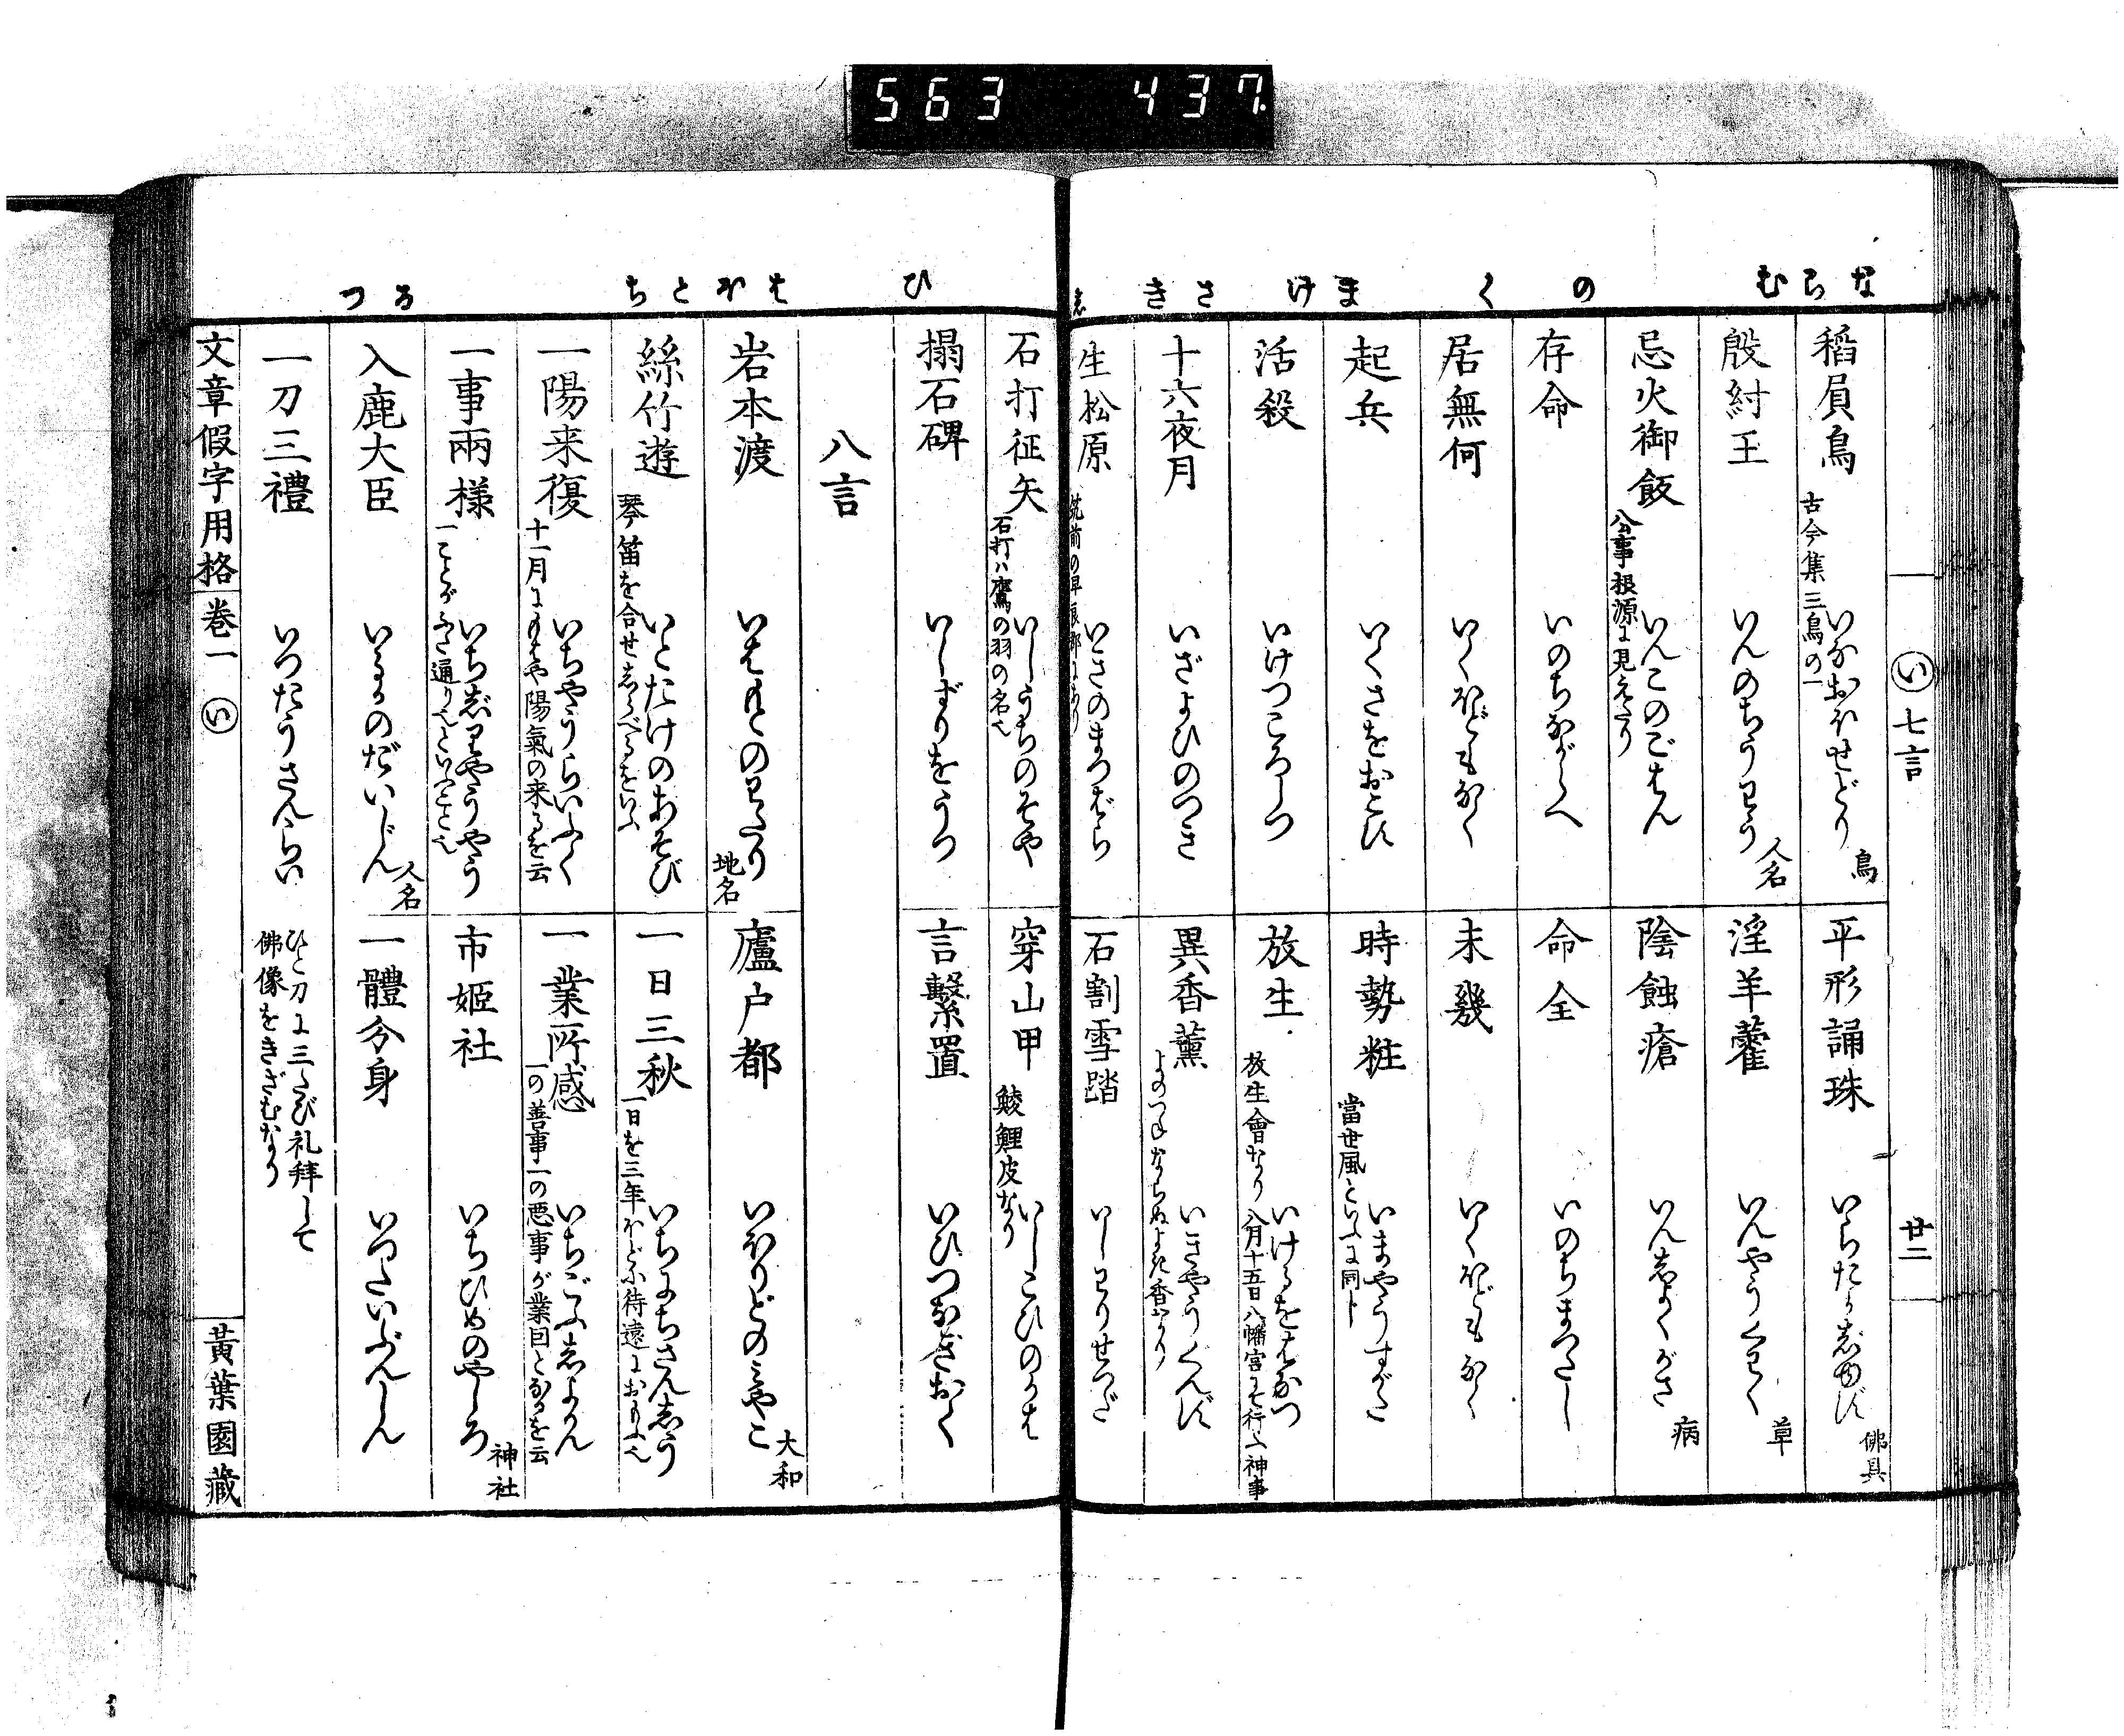 563 437
ならむ の く まけ さき し
い 七言 廿二
稲屓鳥 古今集三鳥の一 いなおほせどり 鳥
平形誦珠 いらたかじゆず 佛具
殷紂王 いんのちうわう 人名
淫羊藿 いんやうくわく 草
忌火御飯 公事根源に見えたり いんこのごはん
陰蝕瘡 いんしよくがさ 病
存命 いのちながらへ
命全 いのちまつたし
居無何 いくほどもなく
未幾 いくほどもなく
起兵 いくさをおこす
時勢粧 當世風といふに同し いまやうすがた
活殺 いけつころしつ
放生 放生會なり八月十五日八幡宮にて行ふ神事 いけるをはなつ
十六夜月 いざよひのつき
異香薫 よのつねならぬよき香なり いきやうくんず
生松原 筑前の早良郡にあり いきのまつばら
石割雪踏 いしわりせつだ
ひ はほとち るつ
石打征矢 石打ハ鷹の羽の名也 いしうちのそや
穿山甲 鯪鯉皮なり いしこひのかは
搨石碑 いしずりをうつ
言繋置 いひつなぎおく
八言
岩本渡 いはもとのわたり 地名
廬戸都 いほりどのみやこ 大和
絲竹遊 琴笛を合せしらべるをいふ いとたけのあそび
一日三秋 一日を三年ほどに待遠におもふ也 いちにちさんしう
一陽来復 十一月にもはや陽氣の来るを云 いちやうらいふく
一業所感 一の善事一の悪事が業因となるを云 いちごふしよかん
一事兩様 一ことがふた通りへといふこと也 いちじりやうやう
市姫社 いちひめのやしろ 神社
入鹿大臣 いるかのだいじん 人名
一體分身 いつたいぶんしん
一刀三禮 いつたうさんらい ひと刀に三たび礼拝して佛像をきざむなり
文章假字用格 巻一 い 黄葉園藏